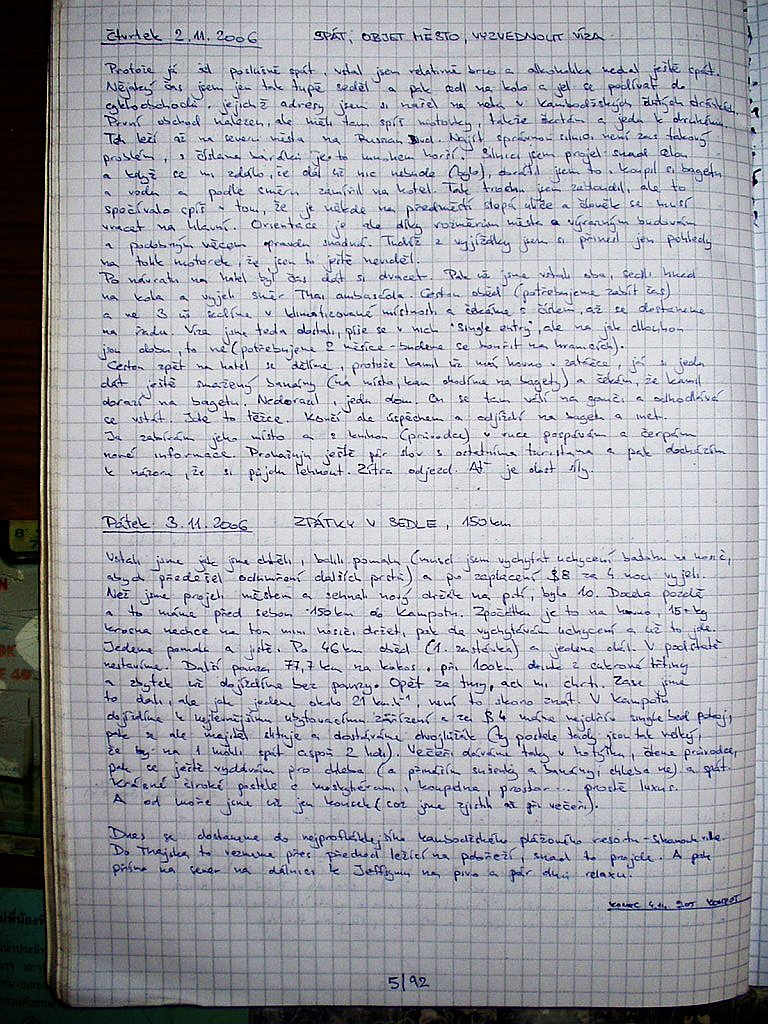 Čtvrtek 2.11.2006 SPÁT, OBJET MĚSTO, VYZVEDNOUT VÍZA
Protože já šel poslušně spát, vstal jsem relativně brzo a alkoholika nechal ještě spát.
Nějaký čas jsem jen tak tupě seděl a pak sedl na kolo a jel se podívat do
cykloobchodů, jejichž adresy jsem si našel na netu v kambodžských žlutých stránkách.
První obchod nalezen, ale měli tam spíš motorky, takže škrtám a jedu k druhému.
Ten leží až na severu města na Russian Bvd. Najít správnou silnici není zas takový
problém, s číslama baráků je to mnohem horší. Silnici jsem projel snad celou
a když se mi zdálo, že dál už nic nebude (bylo), obrátil jsem to. Koupil si bagetu
a vodu a podle směru zamířil na hotel. Tak trochu jsem zabloudil, ale to
spočívalo spíš v tom, že je někde na předměstí slepá ulice a člověk se musí
vracet na hlavní. Orientace je ale díky rozměrům města a výrazným budovám
a podobným věcem opravdu snadná. Tudíž z vyjížďky jsem si přinesl jen pohledy
na tolik motorek, že jsem to ještě neviděl.
Po návratu na hotel byl čas dát si dvacet. Pak už jsme vstali oba, sedli hned
na kola a vyjeli směr Thai ambasáda. Cestou oběd (potřebujeme zabít čas)
a ve 3 už sedíme v klimatizované místnosti a čekáme s číslem, až se dostaneme
na řadu. Víza jsme teda dostali, píše se v nich "single entry", ale na jak dlouhou
jsou dobu, to ne (potřebujeme 2 měsíce - budeme se honit na hranicích).
Cestou zpět na hotel se dělíme, protože kamil už má hovno v zatáčce, já si jedu
dát ještě smažený banány (na místo, kam chodíme na bagety) a čekám, že Kamil
dorazí na bagetu. Nedorazil, jedu dom. On se tam válí na gauči a odhodlává
se vstát. Jde to těžce. Končí ale úspěchem a odjíždí na bagetu a inet.
Já zabírám jeho místo a s knihou (průvodce) v ruce pospávám a čerpám
nové informace. Prohazuju ještě pár slov s ostatníma turistama a pak docházím
k názoru, že si půjdu lehnout. Zítra odjezd. Ať je dost síly.
Pátek 3.11.2006 ZPÁTKY V SEDLE, 150km
Vstali jsme jak jsme chtěli, balili pomalu (musel jsem vychytat uchycení batohu na nosič,
abych předešel odumření dalších prstů) a po zaplacení $8 za 4 noci vyjeli.
Než jsme projeli městem a sehnali nový držák na pití, bylo 10. Docela pozdě
a to máme před sebou ~150km do Kampotu. Zpočátku je to na hovno, 15+kg
krosna nechce na tom mini nosiči držet, pak ale vychytávám uchycení a už to jde.
Jedeme pomalu a jistě. Po 46km oběd (1. zastávka) a jedeme dál. V podstatě
nestavíme. Další pauza 77,7km na kokos, při 100km drink z cukrové třtiny
a zbytek už dojíždíme bez pauzy. Opět za tmy, ach mi chrti. Zase jsme
to dali, ale jak jedeme okolo 21 kmh⁻¹, není to skoro znát. V kampotu
dojíždíme k nejlevnějšímu ubytovacímu zařízení a za $4 máme nejdřív single bed pokoj,
pak se ale majitel slituje a dostáváme dvojlůžák (ty postele tady jsou tak velký,
že by na 1 měli spát aspoň 2 lidi). Večeři dáváme taky v hotýlku, čteme průvodce,
pak se ještě vydávám pro chleba (a přináším sušenky a banány, chleba ne) a spát.
Krásné široké postele s moskytiérami, koupelna, prostor... prostě luxus.
A od moře jsme už jen kousek (což jsme zjistili až při večeři).
Dnes se dostaneme do nejprofláklejšího kambodžského plážového resortu - Sihanoukville.
Do Thajska to vezmeme přes přechod ležící na pobřeží, snad to projde. A pak
přímo na sever na dálnici k Jeffymu na pivo a pár dní relaxu.
KONEC 4.11. KAMPOT
5/92